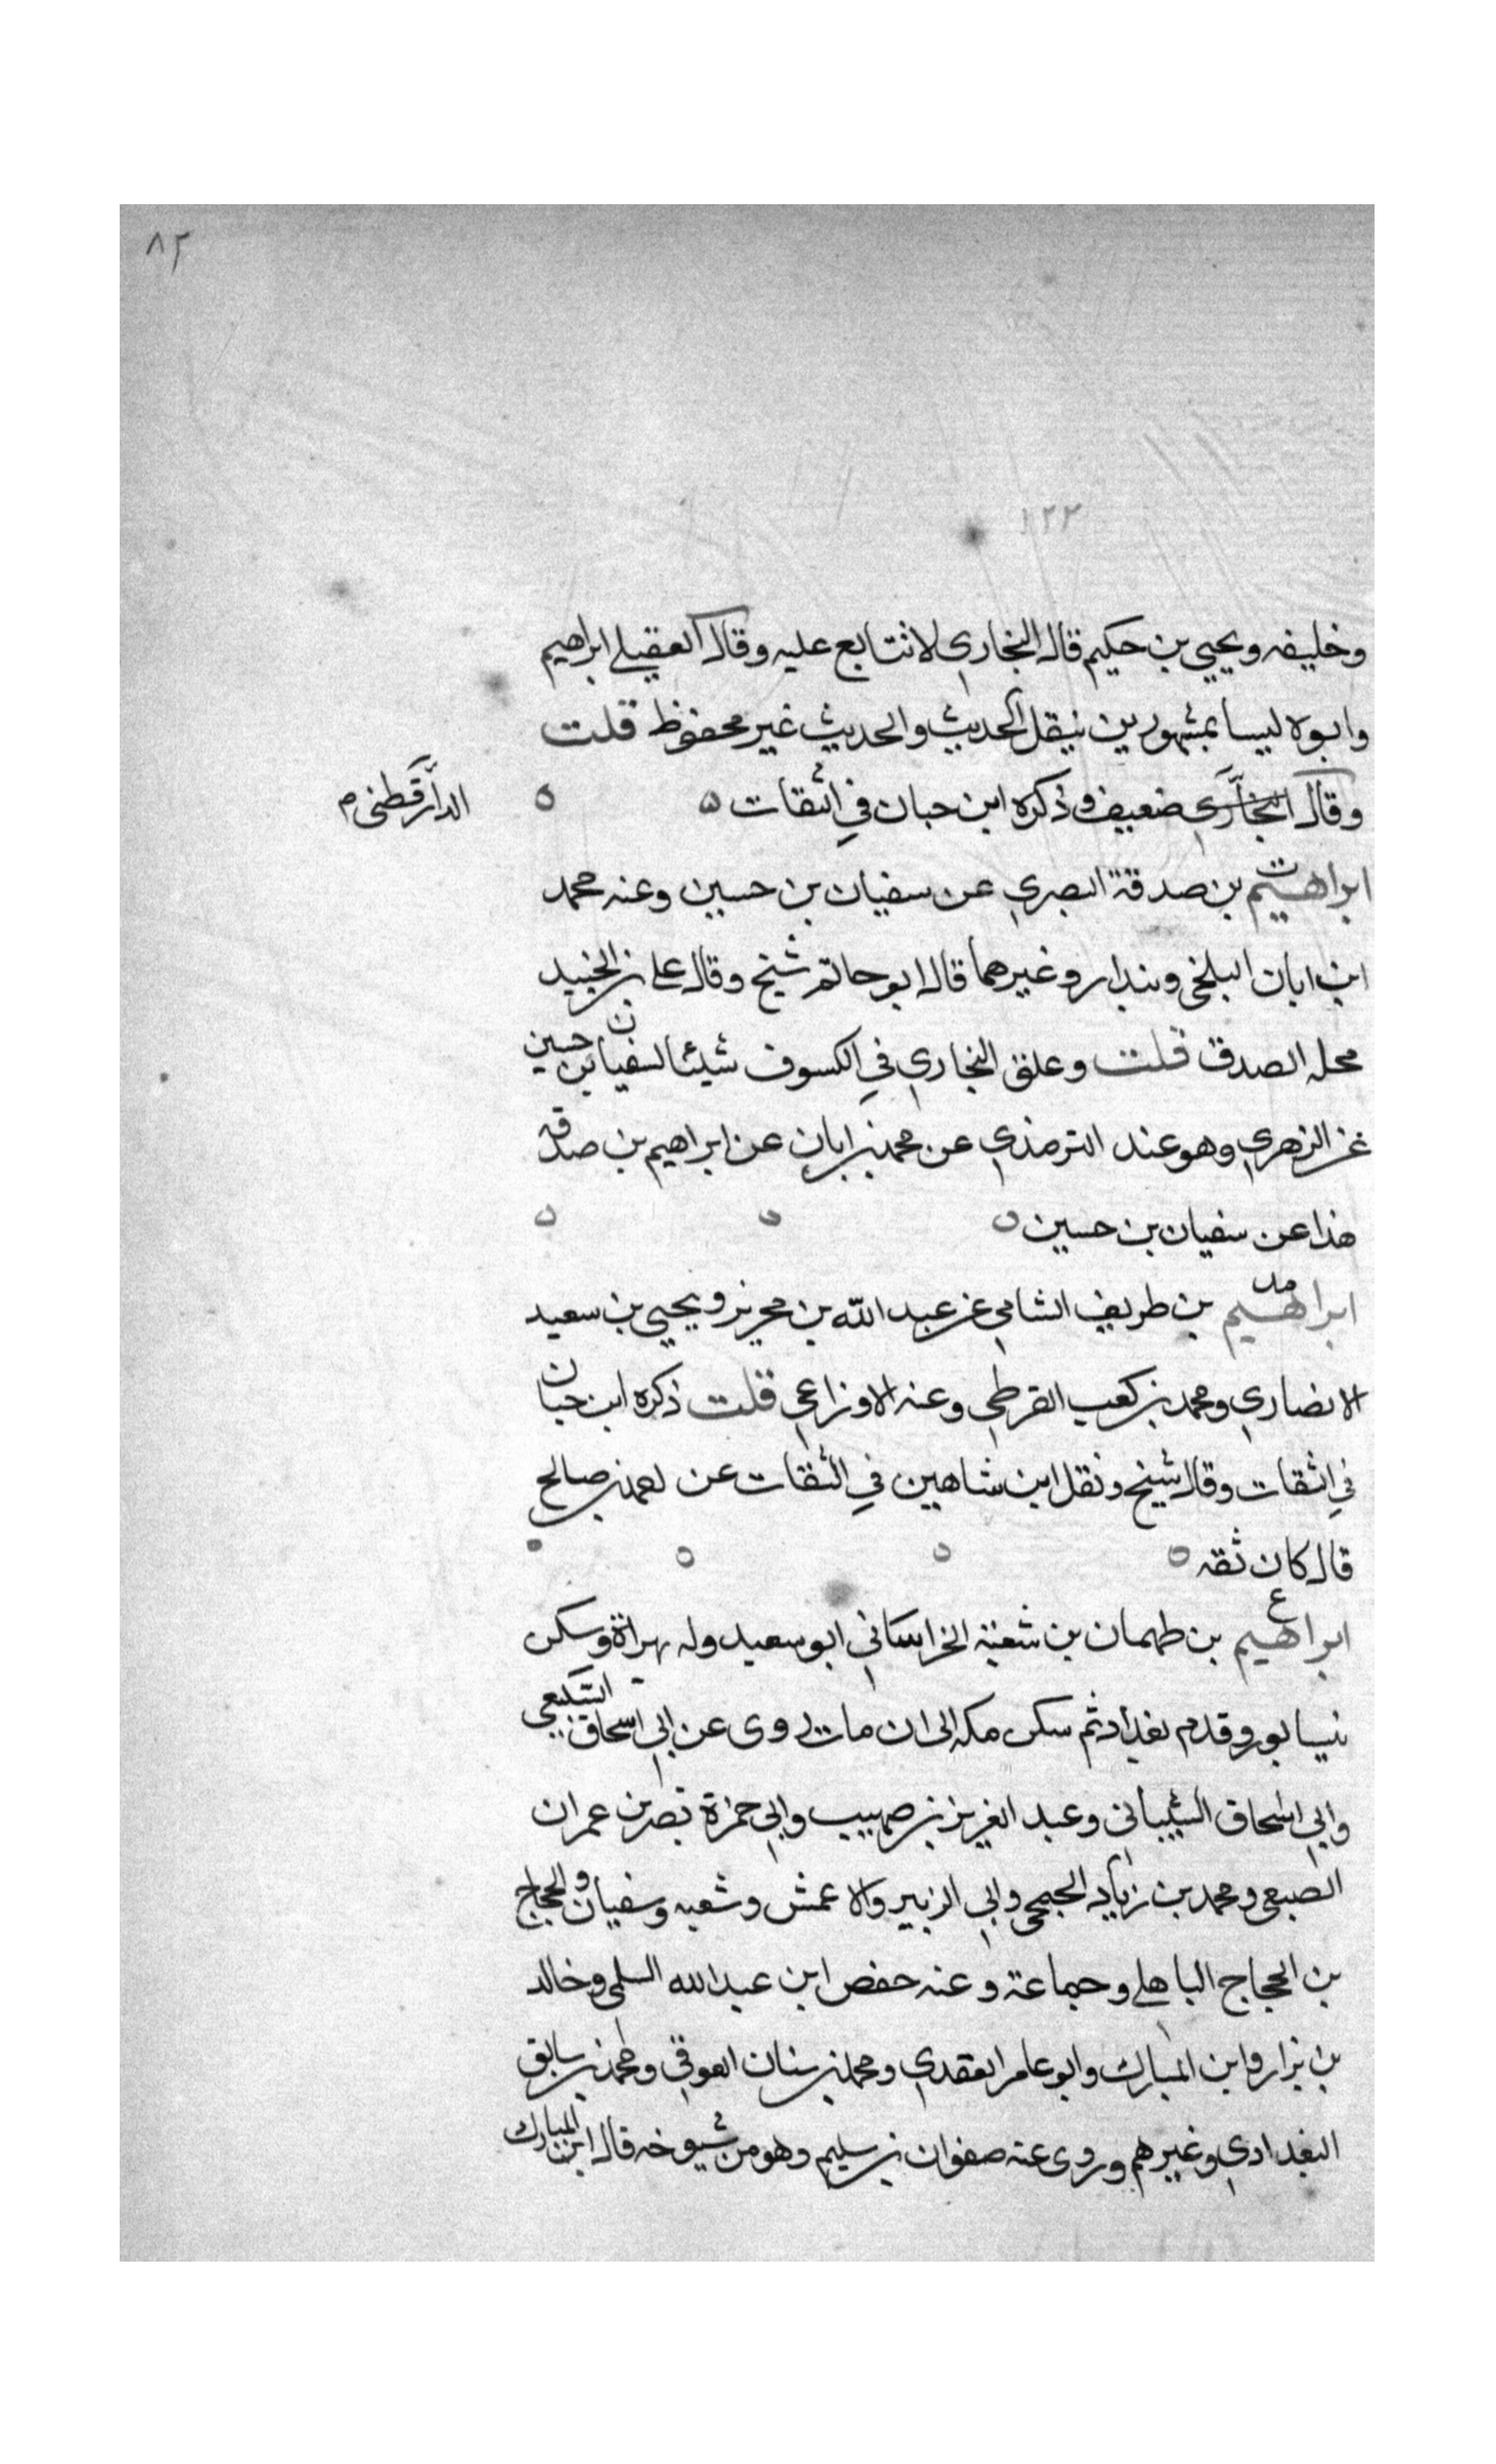 ٨٢
١٢٢
وخليفه ويحيى بن حكيم قال البخاري لا نتابع عليه وقال العقيلي ابراهيم
وابوه ليسا بمشهورين بنقل الحديث والحديث غير محفوظ قلت
وقال البخاري ضعيف وذكره ابن حبان في الثقات ه ه
الدارقطنى م
ت
ابراهيم بن صدقة البصري عن سفيان بن حسين وعنه محمد
ابن ابان البلخي وبندار وغيرهما قال ابو حاتم شيخ وقال علي بن الجنيد
محله الصدق قلت وعلق البخاري في الكسوف شيئا لسفيان بن حسين
عن الزهري وهو عند الترمذي عن محمد بن ابان عن ابراهيم بن صدقه
هذا عن سفيان بن حسين ه ه ه
مد
ابراهيم بن طريف الشامي عن عبد الله بن محريز ويحيى بن سعيد
الانصاري ومحمد بن كعب القرطي وعنه الاوزاعي قلت ذكره ابن حبان
في الثقات وقال شيخ ونقل ابن شاهين في الثقات عن احمد بن صالح
قال كان ثقه ه ه ه ه
ع
ابراهيم بن طهمان بن شعبة الخراساني ابو سعيد ولد بهراة وسكن
نيسابور وقدم بغداد ثم سكن مكه الى ان مات روى عن ابي اسحاق السبيعي
وابي اسحاق الشيباني وعبد العزيز بن صهيب وابي حمزة نصر بن عمران
الضبعي ومحمد بن زياد الجمحي وابي الزبير والاعمش وشعبه وسفيان والحجاج
بن الحجاج الباهلي وجماعة وعنه حفص ابن عبد الله السلمي وخالد
بن نزار وابن المبارك وابو عامر العقدي ومحمد بن سنان العوقي ومحمد بن سابق
البغدادي وغيرهم وروى عنه صفوان بن سليم وهو من شيوخه قال ابن المبارك